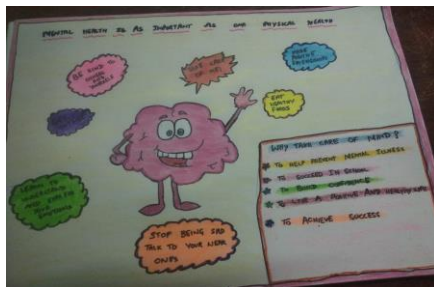 MENTAL HEALTH IS AS IMPORTANT AS OUR PHYSICAL HEALTH
BE KIND TO
TAKE CARE
OF ME!
HAVE
POSITIVE
EAT
HEALTHY
FOODS
LEARN TO
UNDERSTAND
AND
YOUR
EMOTIONS
STOP BEING SAD
TALK TO YOUR NEAR
ONES
WHY TAKE CARE OF MIND?
TO HELP PREVENT MENTAL ILLNESS
TO SUCCEED IN SCHOOL
TO BUILD CONFIDENCE
TO LIVE A POSITIVE AND HEALTHY LIFE
TO ACHIEVE SUCCESS